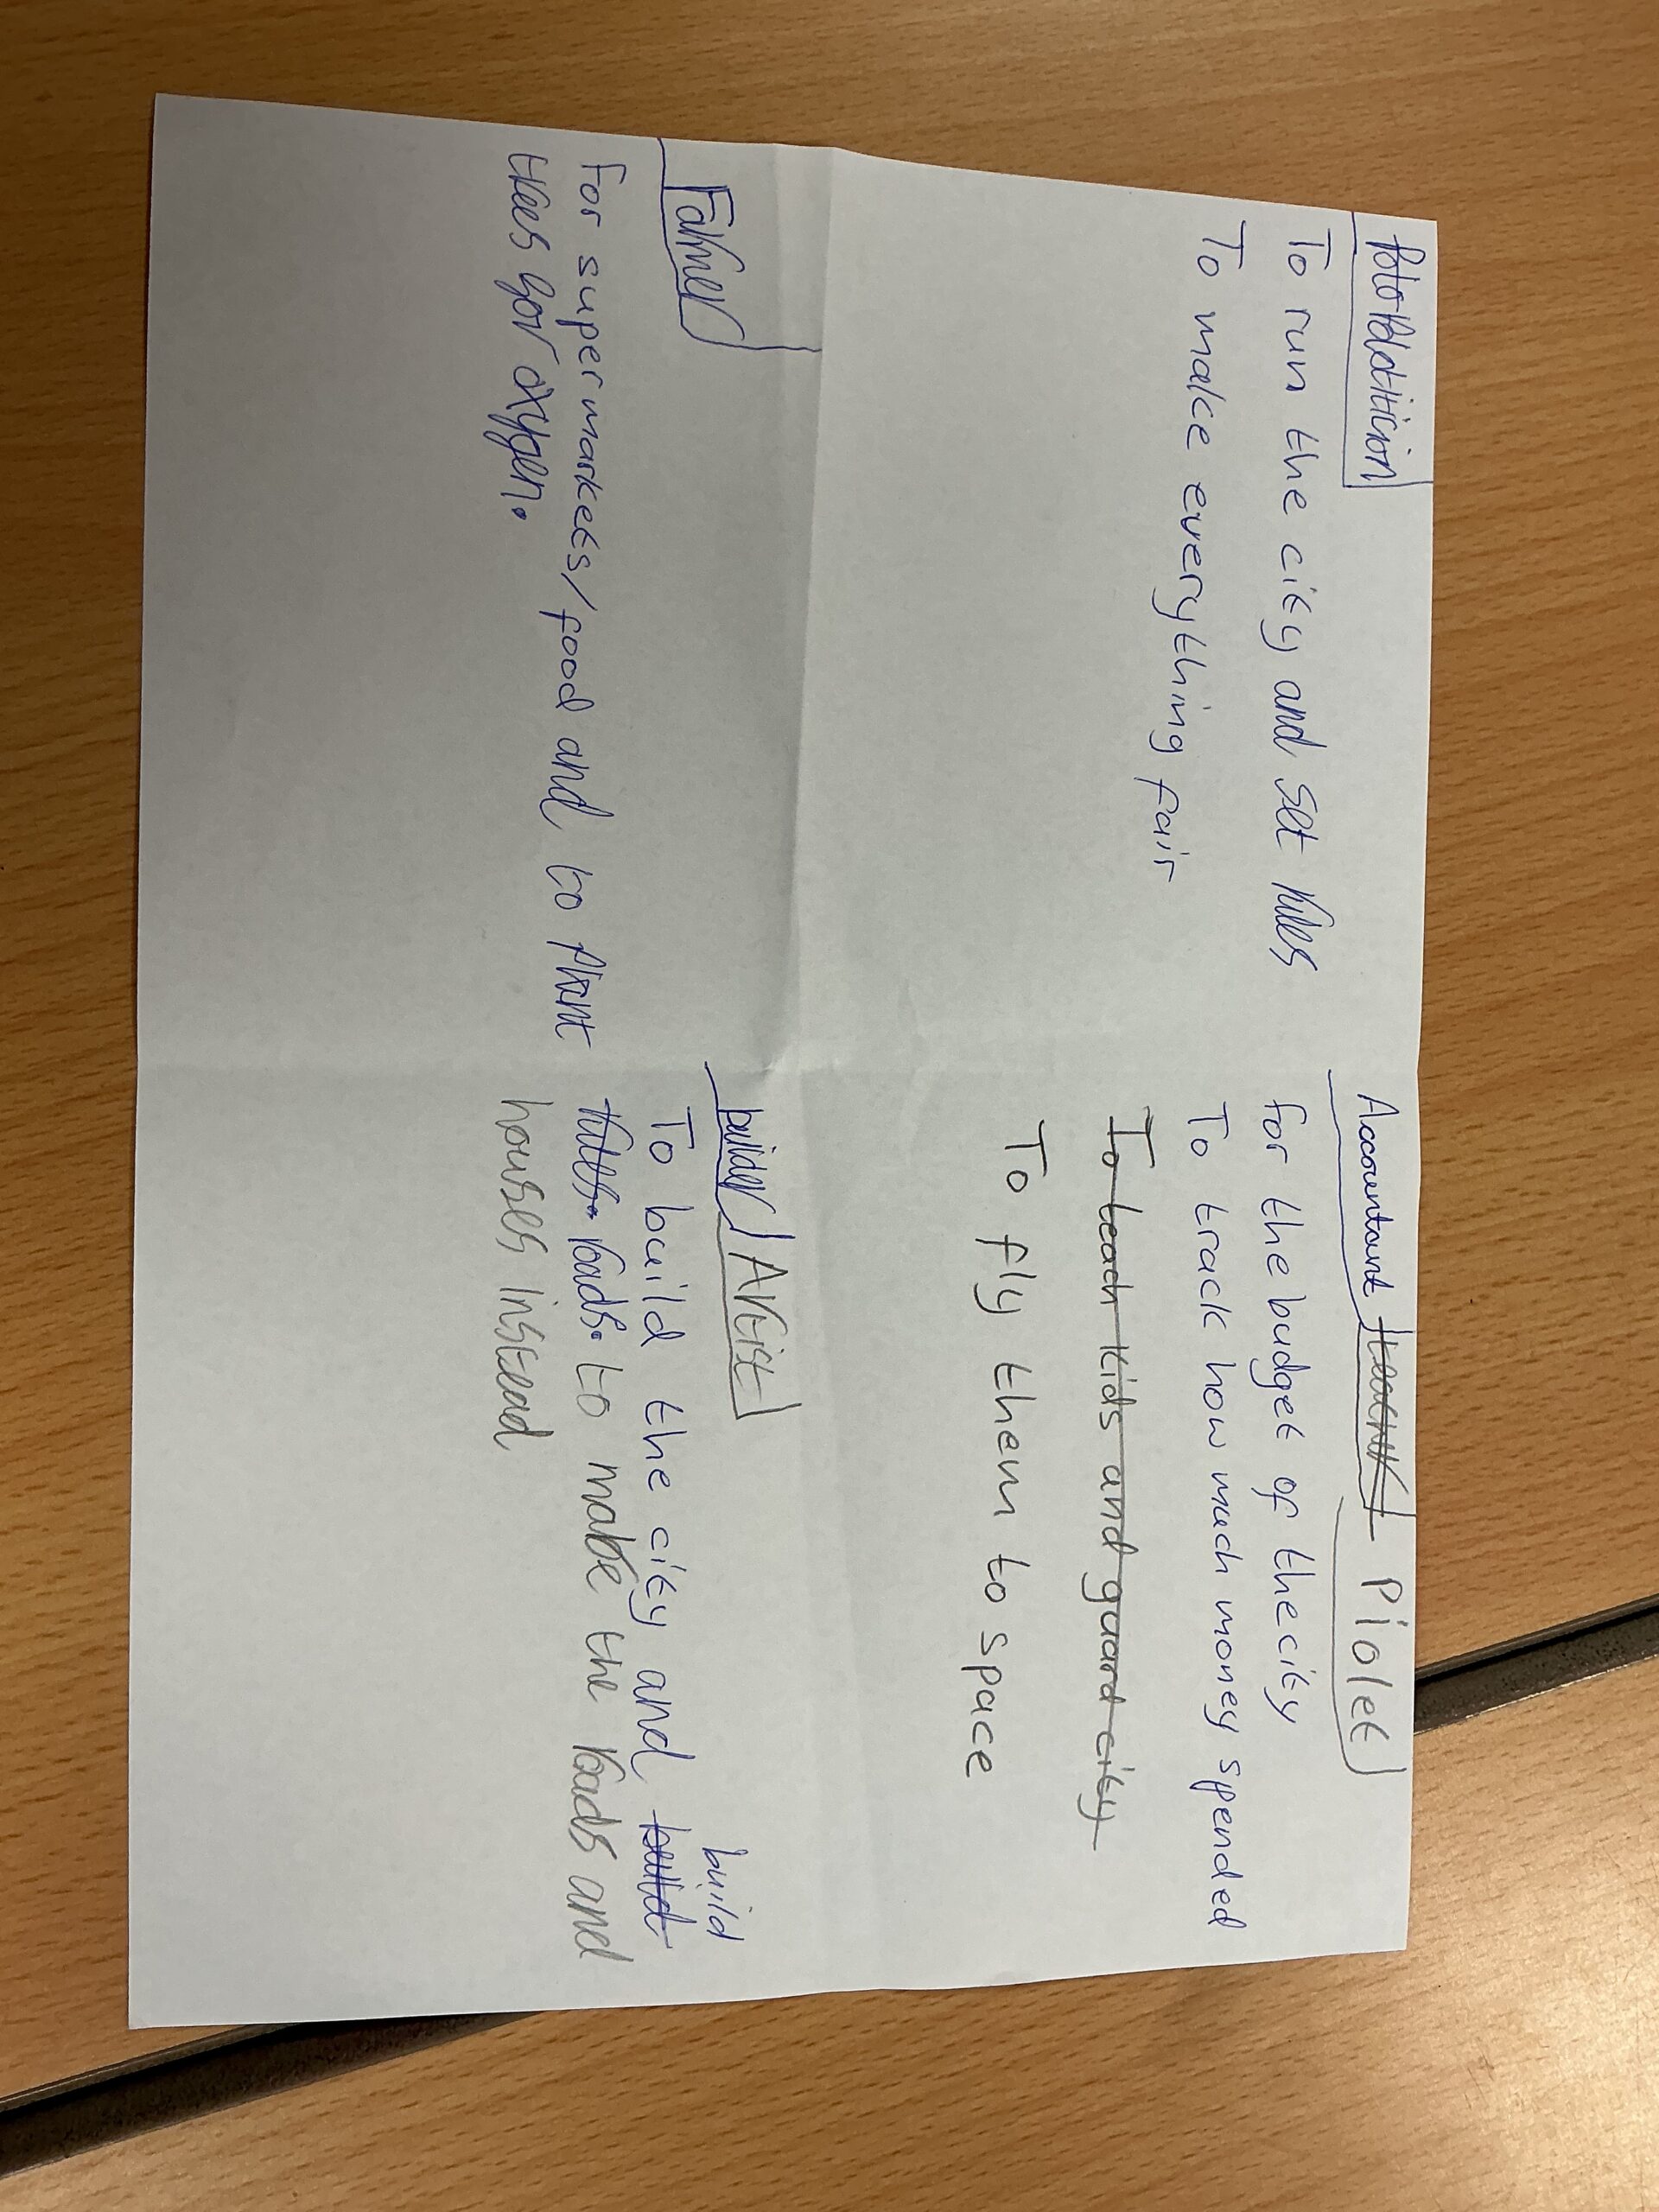 Politicion
To run the city and set rules
To make everything fair
Accountant Piolet
for the budget of the city
To track how much money spended
To teach kids and guard city
To fly them to space
Farmer
for supermarkets/food and to plant
trees for oxygen.
builder Artist
build
To build the city and build
roads. to make the roads and
houses instead